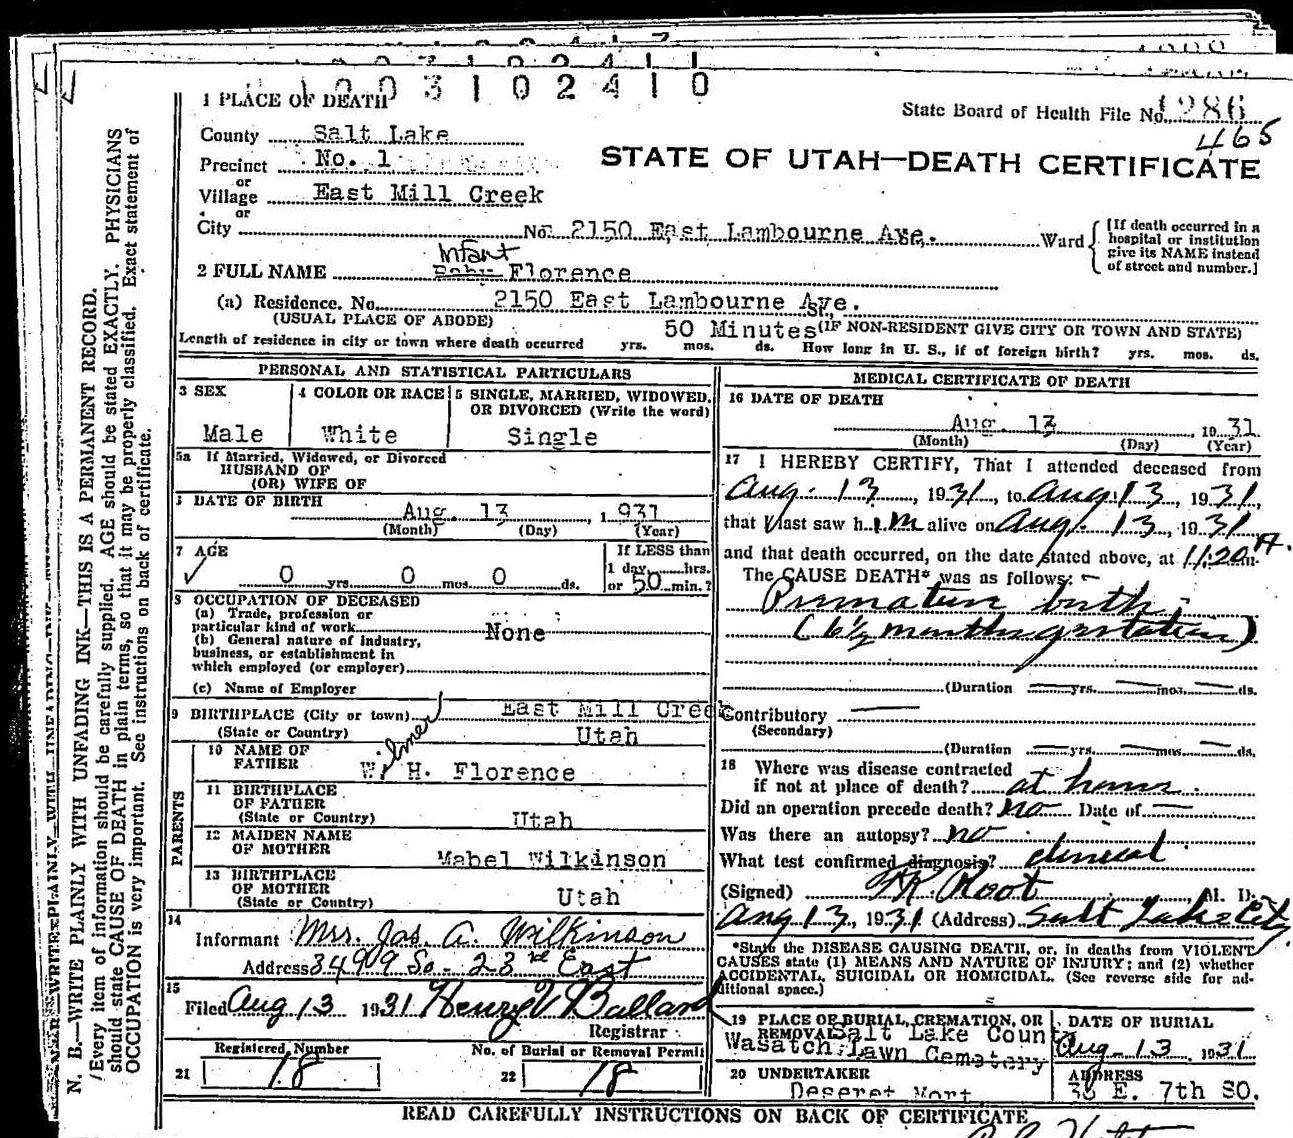 1003102410
1 PLACE OF DEATH
State Board of Health File No. 1286
465
County Salt Lake
Precinct No. 1
or
Village East Mill Creek
or
City No. 2150 East Lambourne Ave. Ward
[If death occurred in a
hospital or institution
give its NAME instead
of street and number.]
STATE OF UTAH—DEATH CERTIFICATE
Infant
2 FULL NAME Baby Florence
(a) Residence. No. 2150 East Lambourne Ave. St.,
(USUAL PLACE OF ABODE) 50 Minutes (IF NON-RESIDENT GIVE CITY OR TOWN AND STATE)
Length of residence in city or town where death occurred yrs. mos. ds. How long in U. S., if of foreign birth? yrs. mos. ds.
PERSONAL AND STATISTICAL PARTICULARS
3 SEX 4 COLOR OR RACE 5 SINGLE, MARRIED, WIDOWED,
OR DIVORCED (Write the word)
Male White Single
5a If Married, Widowed, or Divorced
HUSBAND OF
(OR) WIFE OF
DATE OF BIRTH
Aug. 13, 1931
(Month) (Day) (Year)
7 AGE If LESS than
1 day,......hrs.
0 yrs. 0 mos. 0 ds. or 50 min.?
8 OCCUPATION OF DECEASED
(a) Trade, profession or
particular kind of work None
(b) General nature of industry,
business, or establishment in
which employed (or employer)
(c) Name of Employer
9 BIRTHPLACE (City or town) East Mill Creek
(State or Country) Utah
PARENTS
10 NAME OF
FATHER Wilmer H. Florence
11 BIRTHPLACE
OF FATHER
(State or Country) Utah
12 MAIDEN NAME
OF MOTHER Mabel Wilkinson
13 BIRTHPLACE
OF MOTHER
(State or Country) Utah
14
Informant Mrs. Jas. A. Wilkinson
Address 3499 So. 23rd East
15
Filed Aug 13 1931 Henry V Ballard
Registrar
Registered Number No. of Burial or Removal Permit
21 18 22 18
MEDICAL CERTIFICATE OF DEATH
16 DATE OF DEATH
Aug. 13 1931
(Month) (Day) (Year)
17 I HEREBY CERTIFY, That I attended deceased from
Aug. 13, 1931, to Aug. 13, 1931,
that I last saw him alive on Aug. 13, 1931
and that death occurred, on the date stated above, at 11:20 A.m.
The CAUSE DEATH* was as follows:
Premature birth;
(6½ months gestation)
(Duration yrs. mos. ds.
Contributory
(Secondary)
(Duration yrs. mos. ds.
18 Where was disease contracted
if not at place of death? at home.
Did an operation precede death? no Date of
Was there an autopsy? no
What test confirmed diagnosis? clinical
(Signed) F.K. Root, M. D.
Aug 13, 1931 (Address) Salt Lake City
*State the DISEASE CAUSING DEATH, or, in deaths from VIOLENT
CAUSES state (1) MEANS AND NATURE OF INJURY; and (2) whether
ACCIDENTAL, SUICIDAL OR HOMICIDAL. (See reverse side for ad-
ditional space.)
19 PLACE OF BURIAL, CREMATION, OR
REMOVAL Salt Lake County
Wasatch Lawn Cemetery
DATE OF BURIAL
Aug-13, 1931
20 UNDERTAKER
Deseret Mort.
ADDRESS
36 E. 7th SO.
READ CAREFULLY INSTRUCTIONS ON BACK OF CERTIFICATE
N. B.—WRITE PLAINLY WITH UNFADING INK—THIS IS A PERMANENT RECORD.
Every item of information should be carefully supplied. AGE should be stated EXACTLY. PHYSICIANS
should state CAUSE OF DEATH in plain terms, so that it may be properly classified. Exact statement of
OCCUPATION is very important. See instructions on back of certificate.